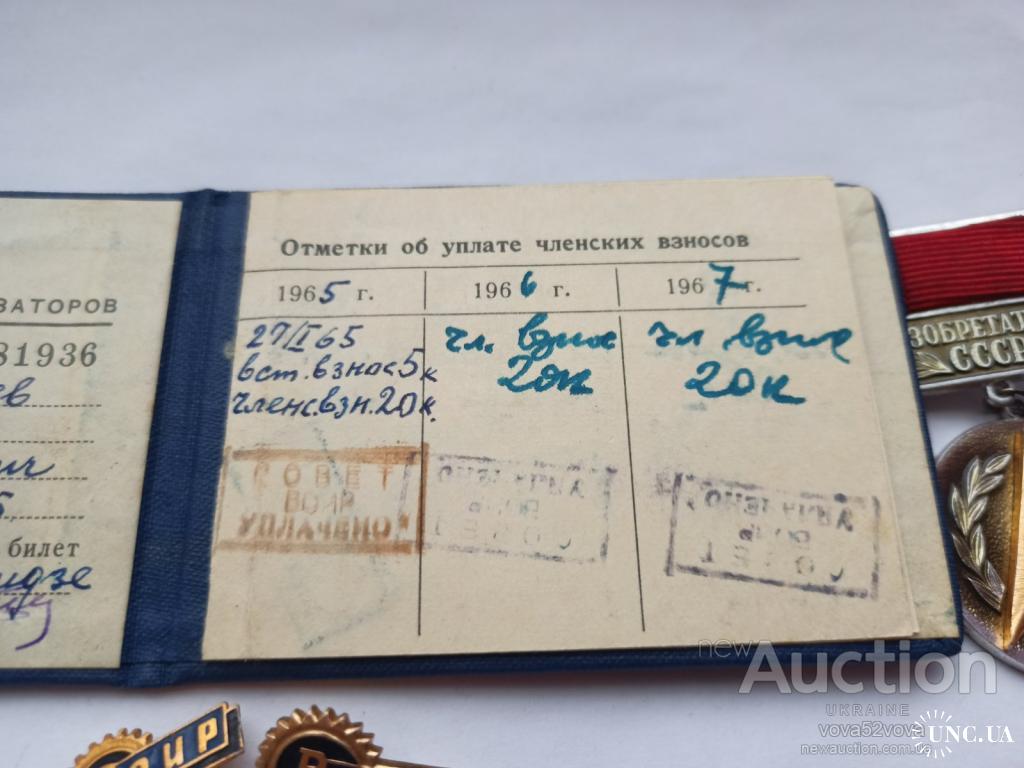 ЗАТОРОВ
81936
ев
ич
5
билет
идзе
Отметки об уплате членских взносов
1965 г.
1966 г.
1967 г.
27/I 65
вст. взнос 5 к
членс. взн. 20 к.
чл. взнос
20к
чл взнос
20к
СОВЕТ
ВОИР
УПЛАЧЕНО
УПЛАЧЕНО
ВОИР
СОВЕТ
УПЛАЧЕНО
ВОИР
СОВЕТ
ЗОБРЕТАТ
СССР
new Auction
UKRAINE
vova52vova
newauction.com.ua
UNC.UA